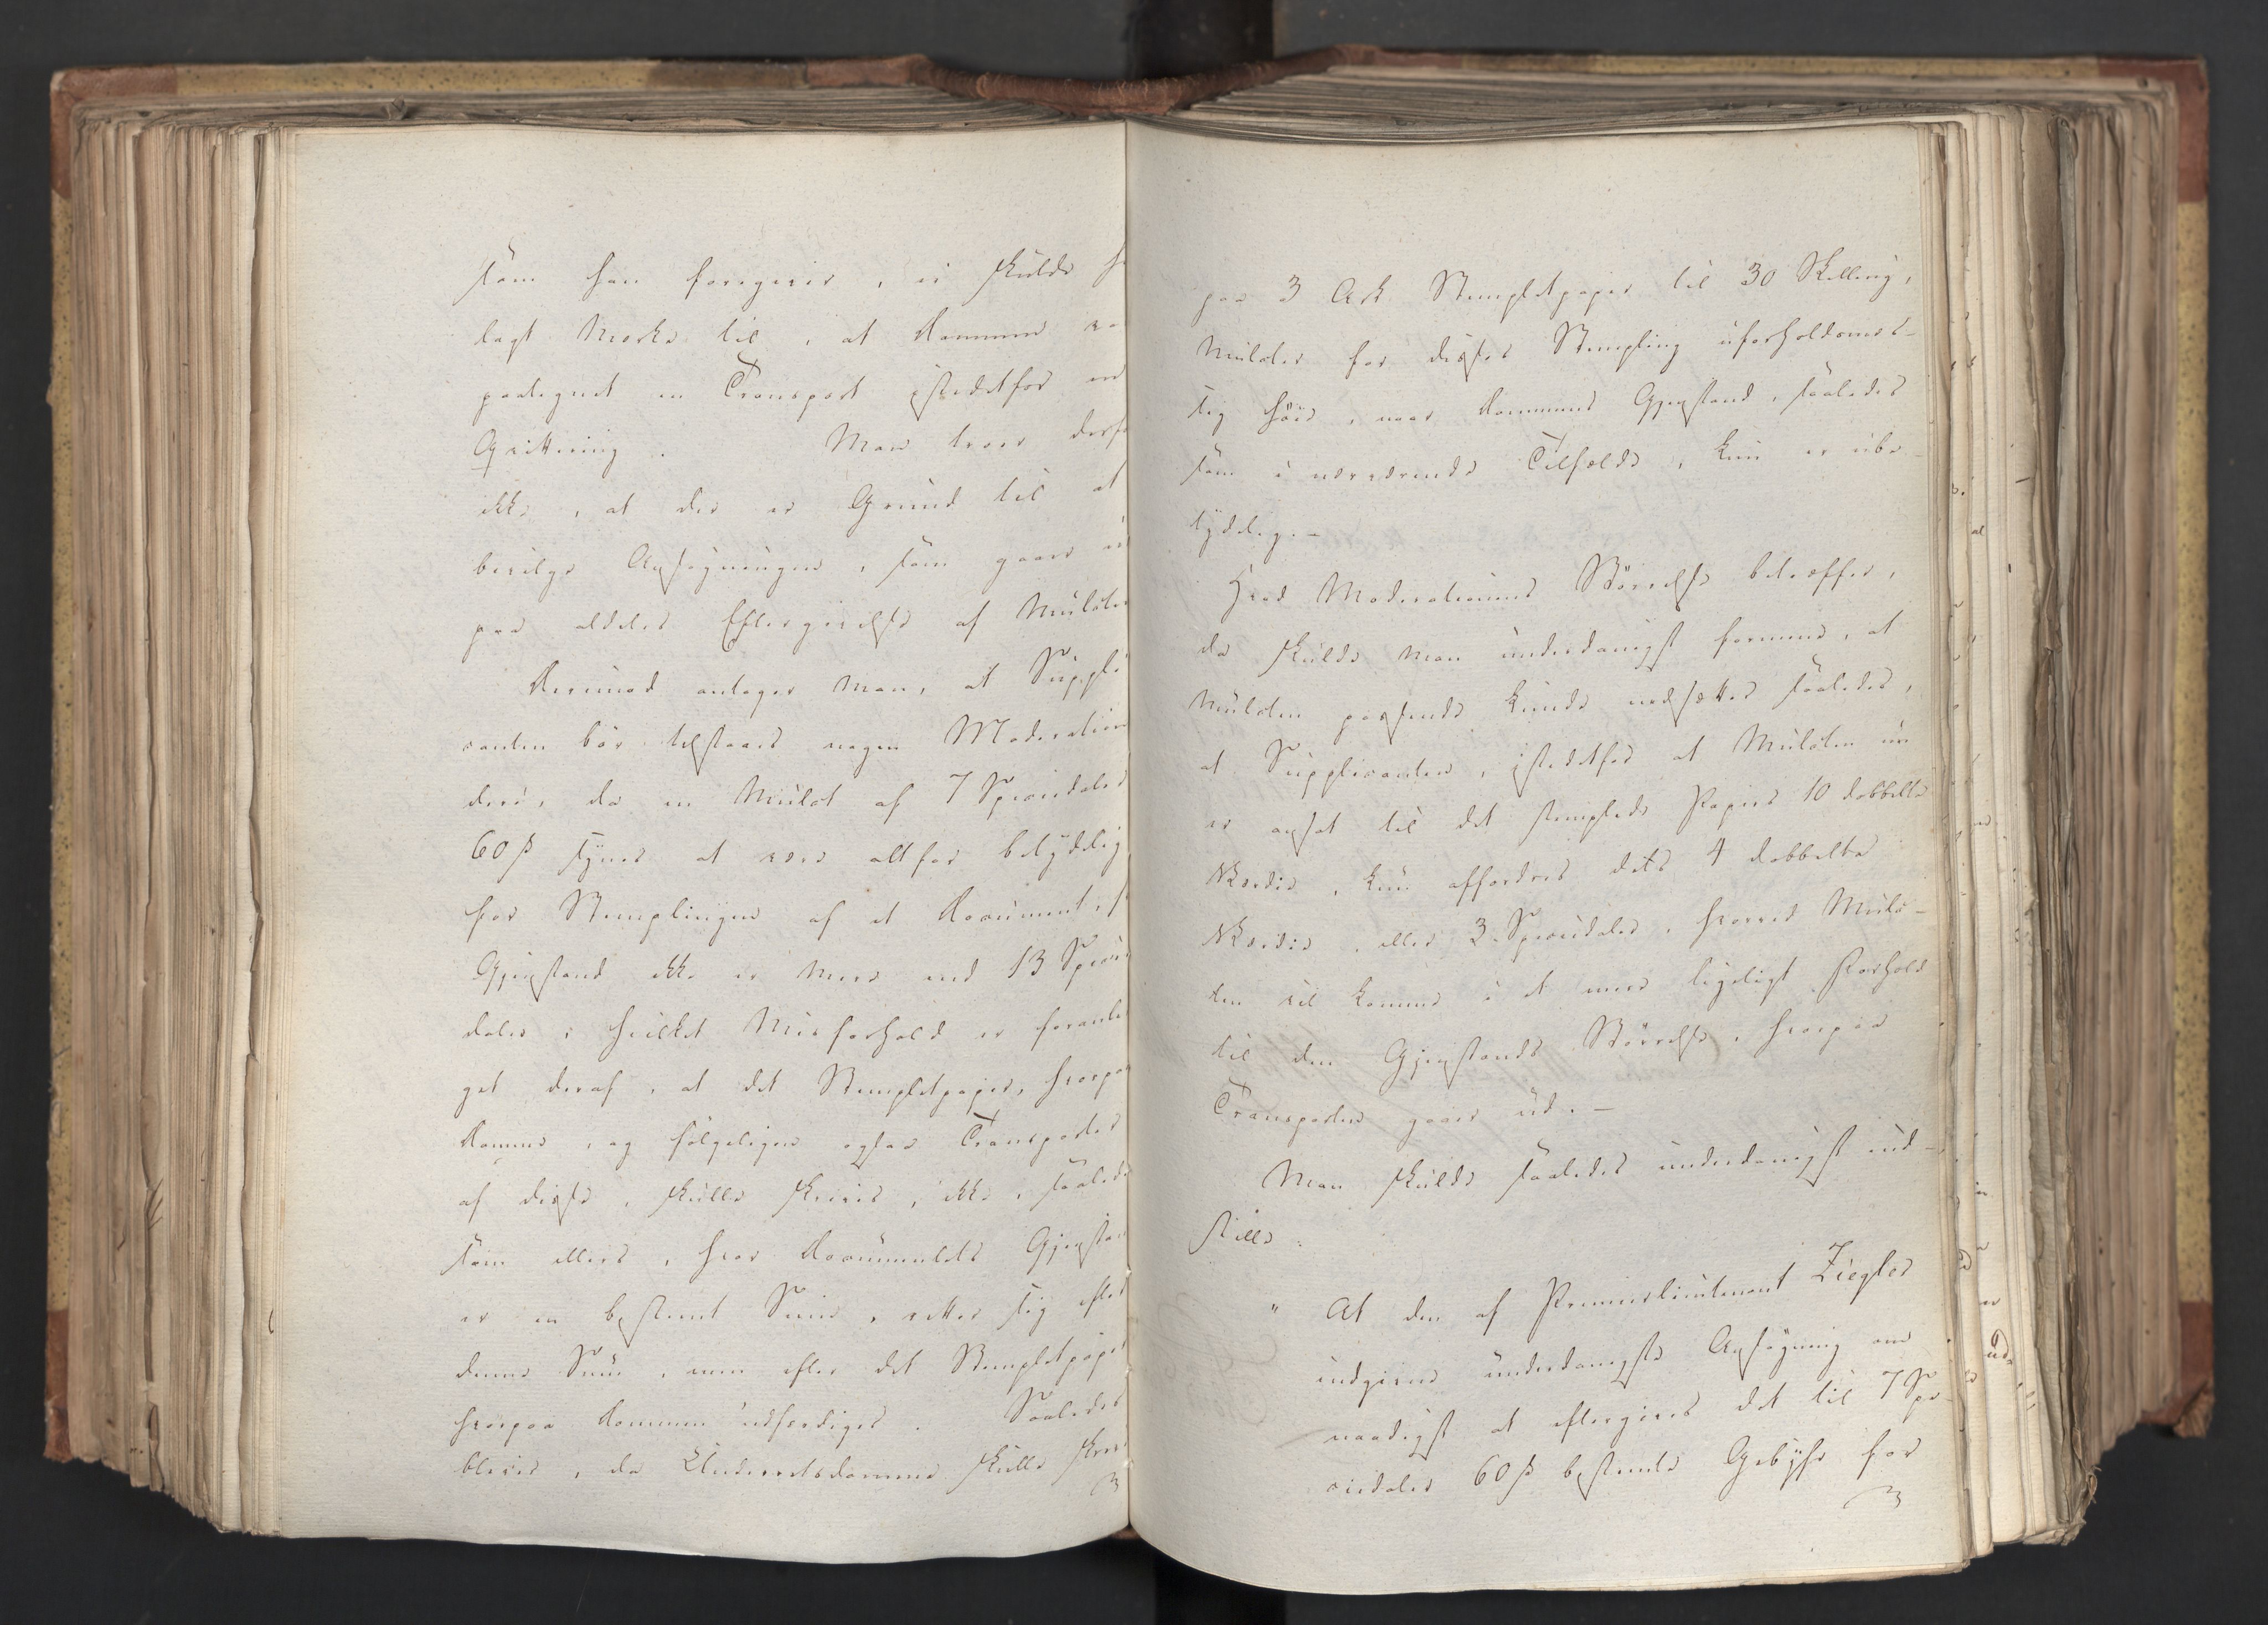 som han foregiver, ei skulde h
lagt Mærke til, at Dommen va
paategnet en Transport istedetfor en
Qvittering. Man troer derfo
ikke, at der er Grund til at
bevilge Ansøgningen, som gaaer
paa aldeles Eftergivelse af Mulcten
Derimod antager Man, at Suppli
canten bør tilstaaes nogen Moderation
deri, da en Mulct af 7 Speciedaler
60 ß synes at være altfor betydelig
for Stemplingen af et Document,
Gjenstand ikke er mere end 13 Specie
daler; hvilket Misforhold er foranle
get deraf, at det Stempletpapir, hvorpaa
Domme, og følgeligen ogsaa Transporter
af disse, skulle skrives, ikke, saaledes
som ellers, hvor Documentets Gjenstan
er en bestemt Sum, retter sig efter
denne Sum, men efter det Stempletpapir
hvorpaa Dommen udfærdiges. Saaledes
bliver, da Underretsdomme skulle skrives
paa 3 Ark Stempletpapir til 30 Skilling,
Mulcter for disses Stempling uforholdsmæs-
sig høie, naar Dommens Gjenstand, saaledes
som i nærværende Tilfælde, kun er ube-
tydelig.-
Hvad Moderationens Størrelse betræffer,
da skulde Man underdanigst formene, at
Mulcten passende kunde nedsættes saaledes,
at Supplicanten, istedetfor at Mulcten nu
er ansat til det stemplede Papirs 10 dobbelte
Værdie, kun affordres dets 4 dobbelte
Værdie, eller 3 Speciedaler, hvorved Mulc-
ten vil komme i et mere ligeligt Forhold
til den Gjenstands Størrelse, hvorpaa
Transporten gaaer ud.-
Man skulde saaledes underdanigst ind-
stille:
" At den af Premierlieutenant Ziegler
indgivne underdanigste Ansøgning om
naadigst at eftergives det til 7 Spe-
ciedaler 60 ß bestemte Gebyhr for